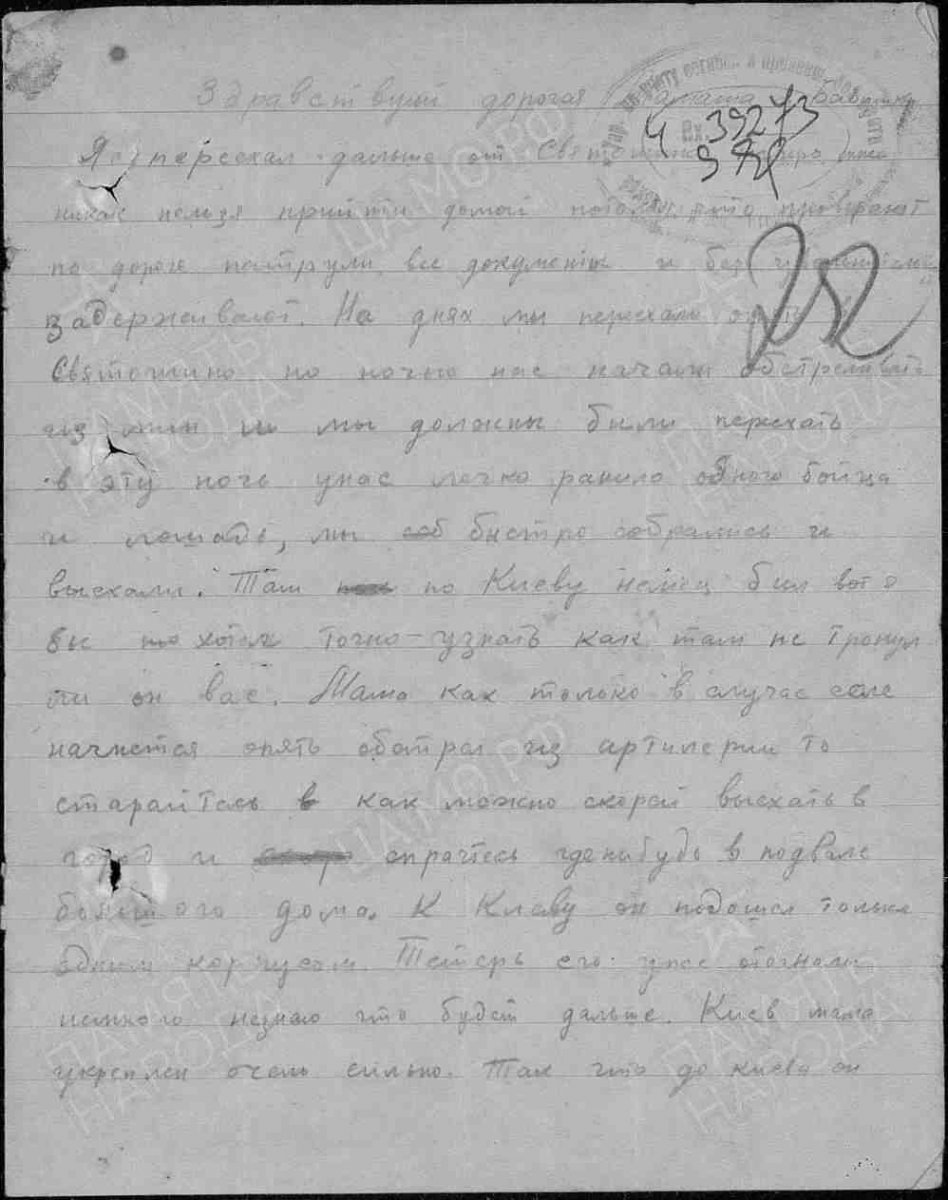 Здравствуй дорогая мамаша и бабушка
Я переехал дальше от Святошино
никак нельзя прийти домой проверяют
по дороге патрули все документы и без
задерживают. На днях мы переехали
Святошино но ночью нас начали обстреливать
из мин и мы должны были переехать
в эту ночь унас легко ранило одного бойца
и лошадь, мы соб быстро собрались и
выехали. Там по Киеву немец бил вот я
бы хотел точно узнать как там не тронул
ли он вас. Мама как только в случае если
начнется опять обстрел из артилерии то
старайтесь в как можно скорей выехать в
город и спрячтесь где нибудь в подвале
большого дома. К Киеву он подошел только
одним корпусом. Теперь его унас отогнали
немного незнаю что будет дальше. Киев мама
укреплен очень сильно. Так что до Киева он
Ч 39273
ЦАМО.РФ
ПАМЯТЬ
НАРОДА
ЦАМО.РФ
ПАМЯТЬ
НАРОДА
ПАМЯТЬ
НАРОДА
ПАМЯТЬ
НАРОДА